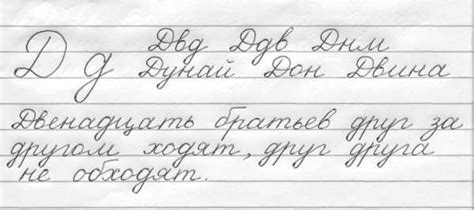 Д д Двд Ддв Днм
Дунай Дон Двина
Двенадцать братьев друг за
другом ходят, друг друга
не обходят.